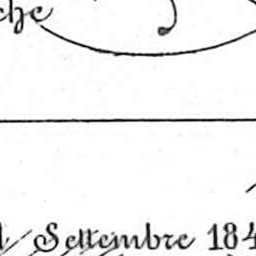 che
Settembre 184